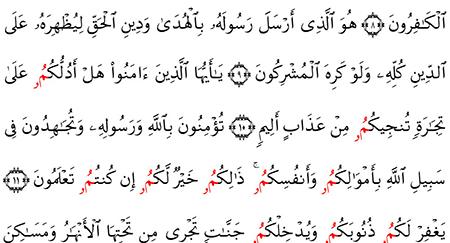 اَلْكَٰفِرُونَ ۝٨ هُوَ اَلَّذِے أَرْسَلَ رَسُولَهُۥ بِالْهُدَىٰ وَدِينِ اِلْحَقِّ لِيُظْهِرَهُۥ عَلَى
اَلدِّينِ كُلِّهِۦ وَلَوْ كَرِهَ اَلْمُشْرِكُونَ ۝٩ يَٰأَيُّهَا اَلَّذِينَ ءَامَنُواْ هَلْ أَدُلُّكُمُۥ عَلَىٰ
تِجَٰرَةٖ تُنجِيكُمُۥ مِنْ عَذَابٍ أَلِيمٖ ۝١٠ تُؤْمِنُونَ بِاللَّهِ وَرَسُولِهِۦ وَتُجَٰهِدُونَ فِى
سَبِيلِ اِللَّهِ بِأَمْوَٰلِكُمُۥ وَأَنفُسِكُمُۥ ۚ ذَٰلِكُمُۥ خَيْرٌ لَّكُمُۥ إِن كُنتُمُۥ تَعْلَمُونَ ۝١١
يَغْفِرْ لَكُمُۥ ذُنُوبَكُمُۥ وَيُدْخِلْكُمُۥ جَنَّٰتٖ تَجْرِى مِن تَحْتِهَا اَلْأَنْهَٰرُ وَمَسَٰكِنَ